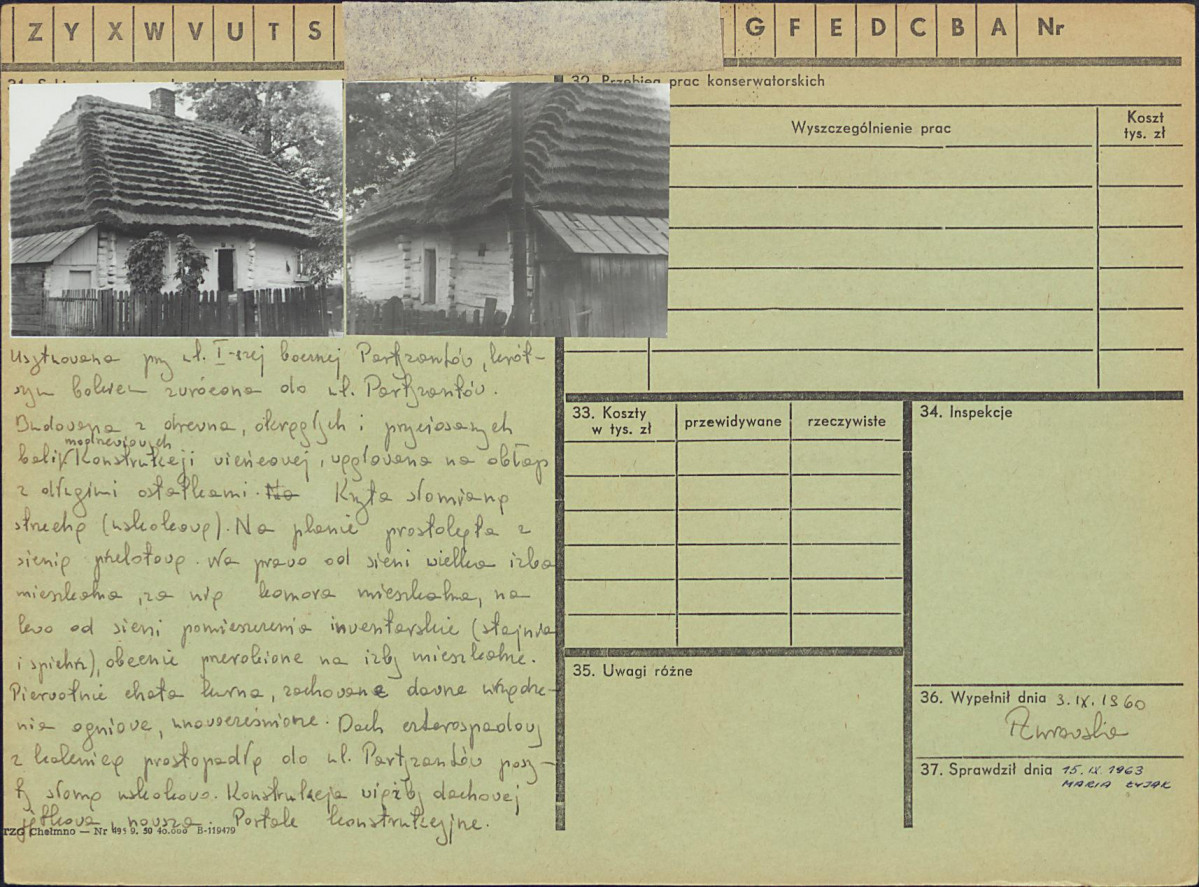 Z Y X W V U T S G F E D C B A Nr
32. Przebieg prac konserwatorskich
Wyszczególnienie prac
Koszt
tys. zł
Usytuowana przy ul. I-szej bocznej Partyzantów, krót-
szym bokiem zwrócona do ul. Partyzantów.
Budowana z drewna, okrągłych i przyciosanych
modrzewiowych
bali, Konstrukcji wieńcowej, węgłowana na obłap
z długimi ostatkami. Na Kryta słomianą
strzechą (uskokową). Na planie prostokąta z
sienią przelotową. Na prawo od sieni wielka izba
mieszkalna, za nią komora mieszkalna, na
lewo od sieni pomieszczenia inwentarskie (stajnia
i spichrz), obecnie przerobione na izby mieszkalne.
Pierwotnie chata kurna, zachowane dawne urządze-
nia ogniowe, unowocześnione. Dach czterospadowy
z kalenicą prostopadłą do ul. Partyzantów poszy-
ty słomą uskokowo. Konstrukcja więźby dachowej
jętkowa, nowsza. Portale konstrukcyjne.
TZG Chełmno — Nr 491 9. 59 40.000 B-119479
33. Koszty
w tys. zł
przewidywane
rzeczywiste
34. Inspekcje
35. Uwagi różne
36. Wypełnił dnia 3.IX.1960
37. Sprawdził dnia 15.IX 1963
MARIA ŁYJAK